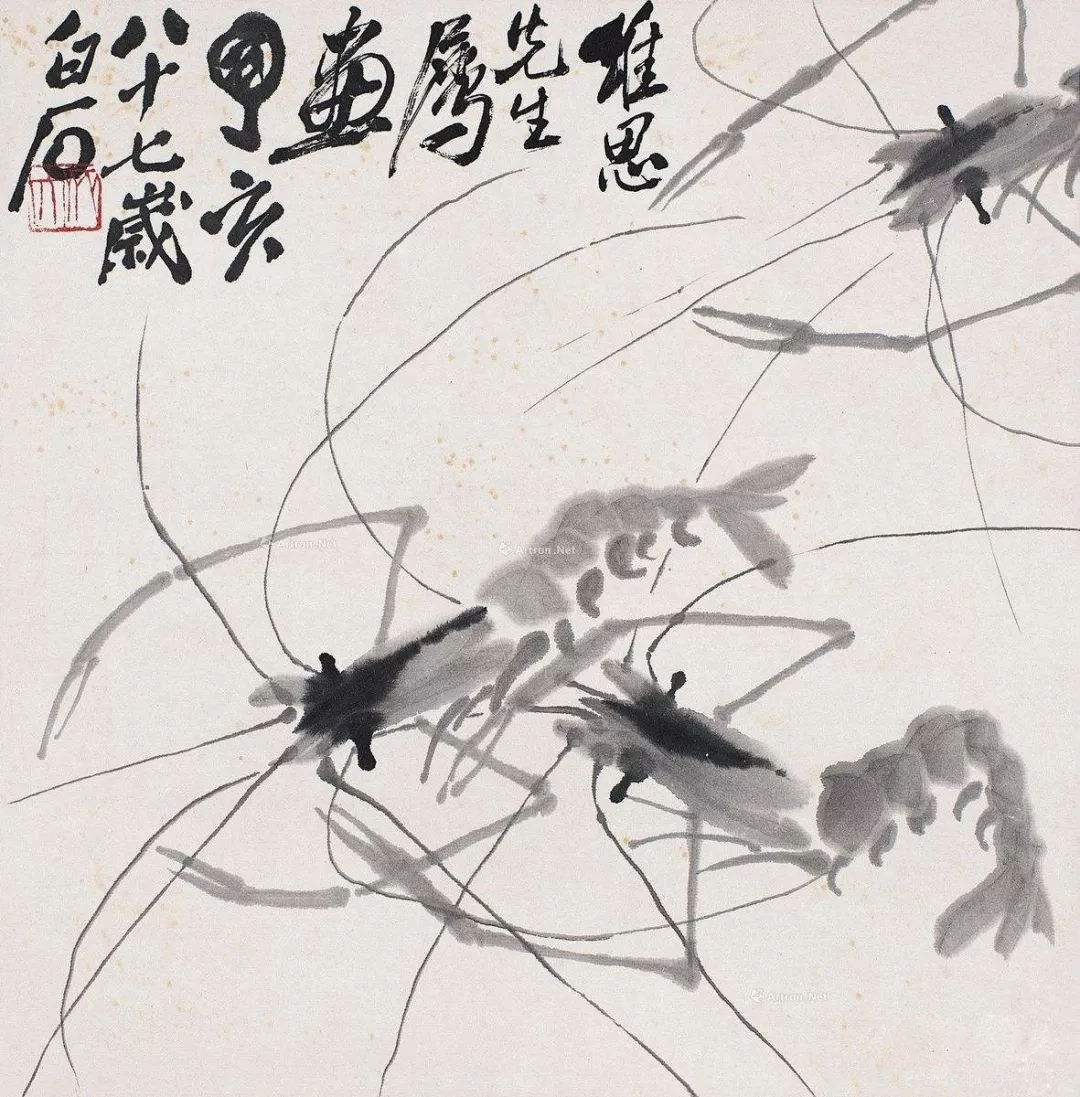 雄思
先生
属
画
甲亥
八十七岁
白石
Artron.Net
Artron.Net
Artron.Net